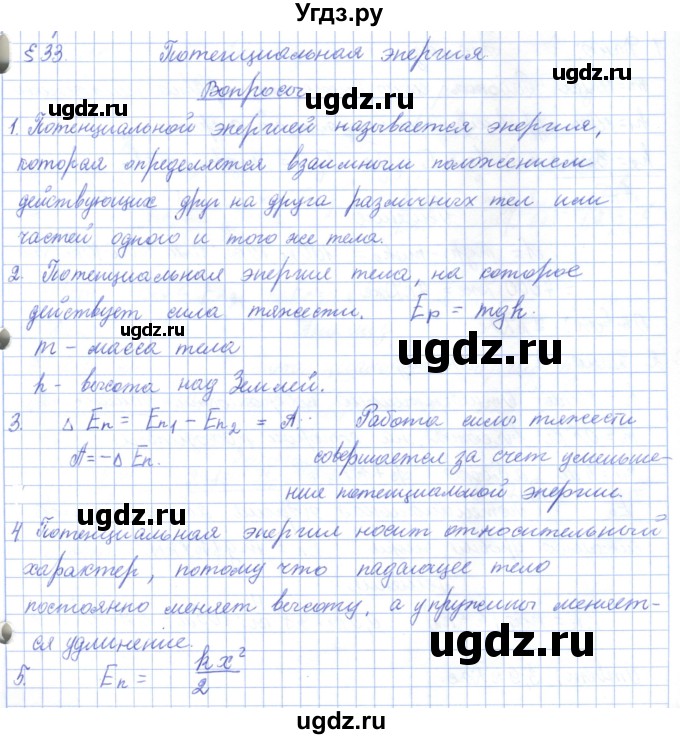 Угдз.ру
§ 33. Потенциальная энергия
Вопросы
1. Потенциальной энергией называется энергия,
которая определяется взаимным положением
действующих друг на друга различных тел или
частей одного и того же тела.
2. Потенциальная энергия тела, на которое
действует сила тяжести. Eр = mgh.
m - масса тела
h - высота над Землей.
3. Δ Eп = Eп1 - Eп2 = A. Работа силы тяжести
A = -Δ Eп. совершается за счет уменьше-
ния потенциальной энергии.
4 Потенциальная энергия носит относительный
характер, потому что падающее тело
постоянно меняет высоту, а у пружины меняет-
ся удлинение.
5. Eп = kx²/2
ugdz.ru
ugdz.ru
ugdz.ru
ugdz.ru
ugdz.ru
ugdz.ru
ugdz.ru
ugdz.ru
ugdz.ru
ugdz.ru
ugdz.ru
ugdz.ru